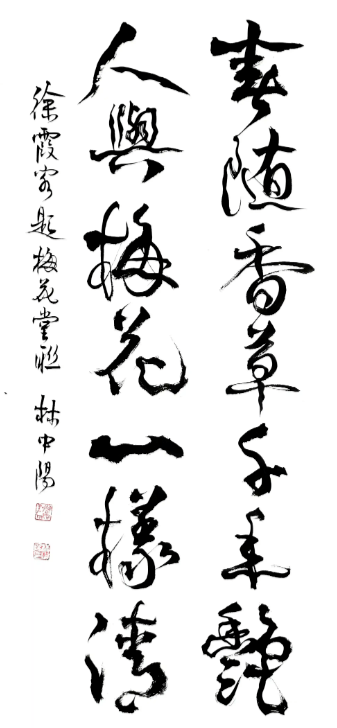 春随香草千年艳
人與梅花一样清
徐霞客题梅花堂联 林中陽